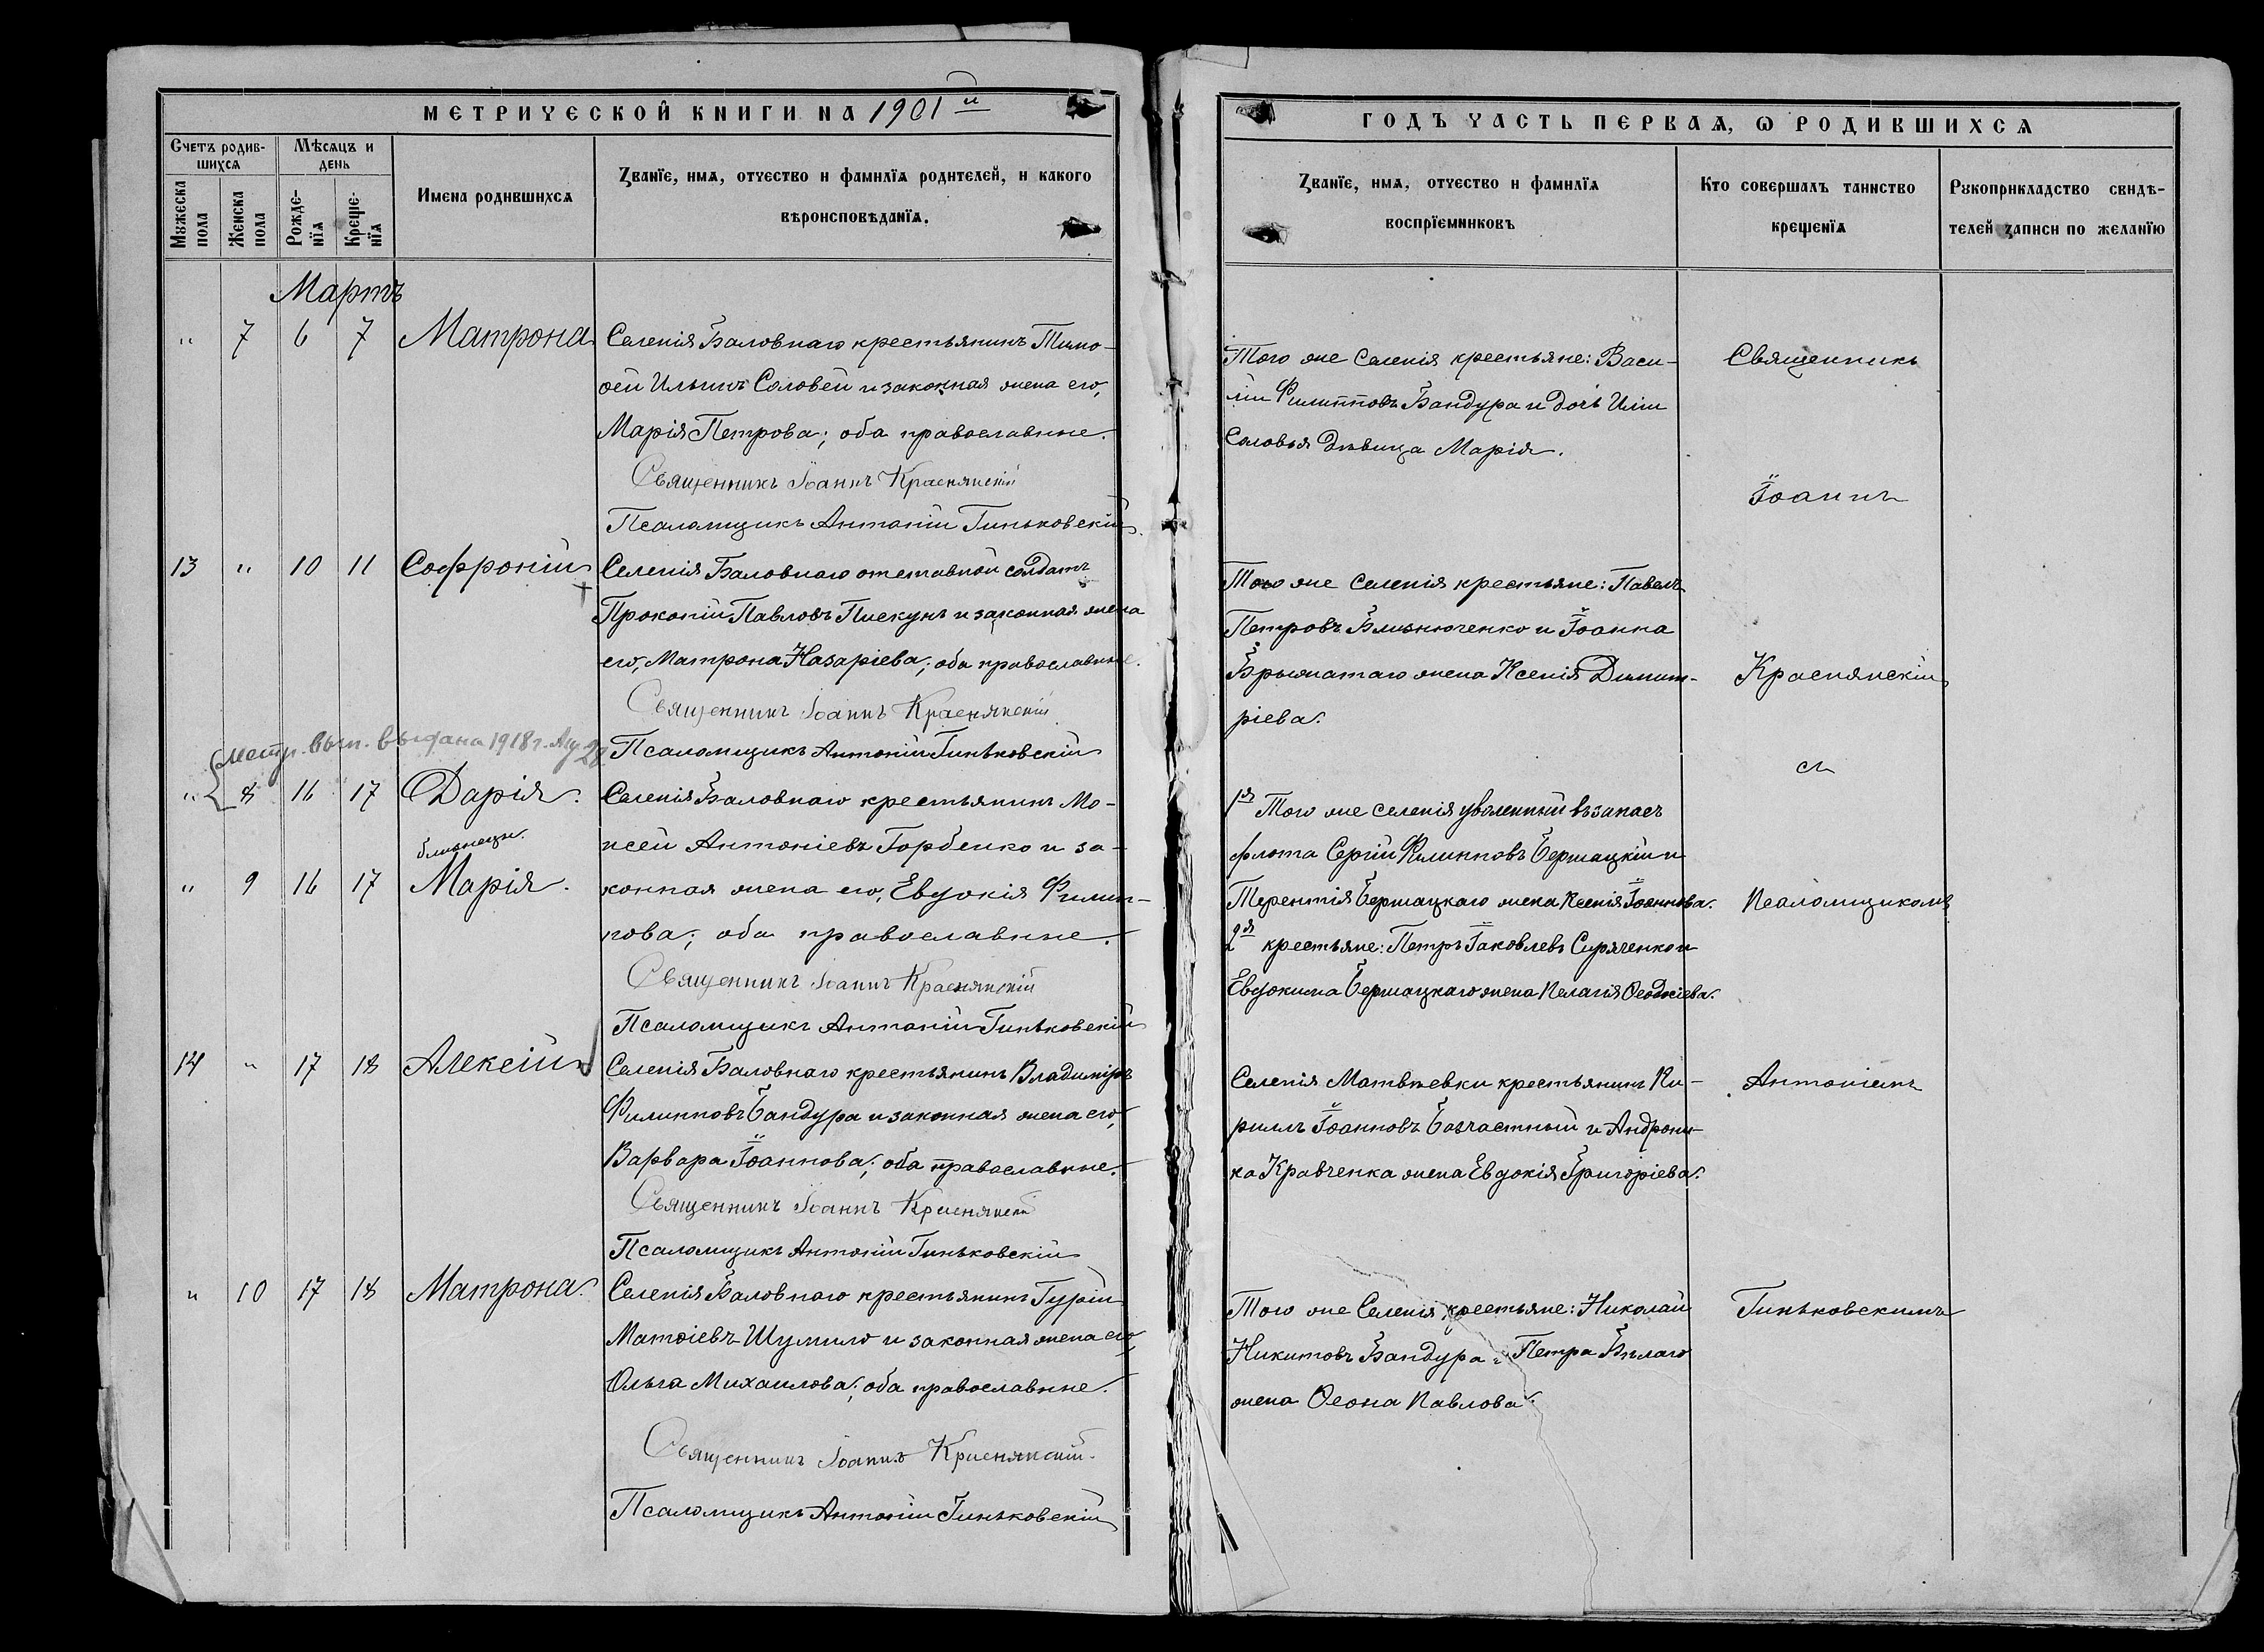 МЕТРИЧЕСКОЙ КНИГИ НА 1901й
Счетъ родив-
шихся
Мѣсяцъ и
день
Мужеска
пола
Женска
пола
Рожде-
нїя
Креще-
нїя
Имена родившихся
Званїе, имя, отчество и фамилїя родителей, и какого
вѣроисповѣданїя.
Мартъ
" 7 6 7 Матрона
Селенія Баловнаго крестьянинъ Тимо-
ѳей Ильинъ Соловей и законная жена его,
Марія Петрова; оба православные.
Священникъ Іоаннъ Краснянскій
Псаломщикъ Антоній Гиньковскій
13 " 10 11 Софроній
Селенія Баловнаго отставной солдатъ
Прокопій Павловъ Пискунъ и законная жена
его, Матрона Назаріева; оба православные.
Священникъ Іоаннъ Краснянскій
метр. вып. выдана 1918 г. Ап. 28
Псаломщикъ Антоній Гиньковскій
" 8 16 17 Дарія.
близнецы.
Селенія Баловнаго крестьянинъ Мо-
исей Антоніевъ Горбенко и за-
" 9 16 17 Марія.
конная жена его, Евдокія Филип-
пова; оба православные.
Священникъ Іоаннъ Краснянскій
Псаломщикъ Антоній Гиньковскій
14 " 17 18 Алексій
Селенія Баловнаго крестьянинъ Владиміръ
Филипповъ Бандура и законная жена его,
Варвара Іоаннова; оба православные.
Священникъ Іоаннъ Краснянскій
Псаломщикъ Антоній Гиньковскій
" 10 17 18 Матрона.
Селенія Баловнаго крестьянинъ Гурій
Матѳіевъ Шумило и законная жена его,
Ольга Михаилова; оба православные.
Священникъ Іоаннъ Краснянскій.
Псаломщикъ Антоній Гиньковскій
ГОДЪ ЧАСТЬ ПЕРВАЯ, Ѡ РОДИВШИХСЯ
Званїе, имя, отчество и фамилїя
воспрїемниковъ
Кто совершалъ таинство
крещенїя
Рукоприкладство свидѣ-
телей записи по желанїю
Того же Селенія крестьяне: Васи-
лій Филипповъ Бандура и дочь Иліи
Соловья дѣвица Марія.
Того же Селенія крестьяне: Павелъ
Петровъ Близнюченко и Іоанна
Брыжатаго жена Ксенія Димит-
ріева.
1я Того же селенія уволенный въ запасъ
флота Сергій Филипповъ Бершацкій и
Терентія Бершацкаго жена Ксенія Іоаннова.
2я крестьяне: Петръ Іаковлевъ Сиряченко и
Евдокима Бершацкаго жена Пелагія Ѳеодосіева.
Селенія Матвѣевки крестьянинъ Ки-
риллъ Іоанновъ Безчастный и Андрони-
ка Кравченка жена Евдокія Григоріева.
Того же Селенія крестьяне: Николай
Никитовъ Бандура и Петра Бѣлаго
жена Ѳеона Павлова.
Священникъ
Іоаннъ
Краснянскій
съ
Псаломщикомъ
Антоніемъ
Гиньковскимъ